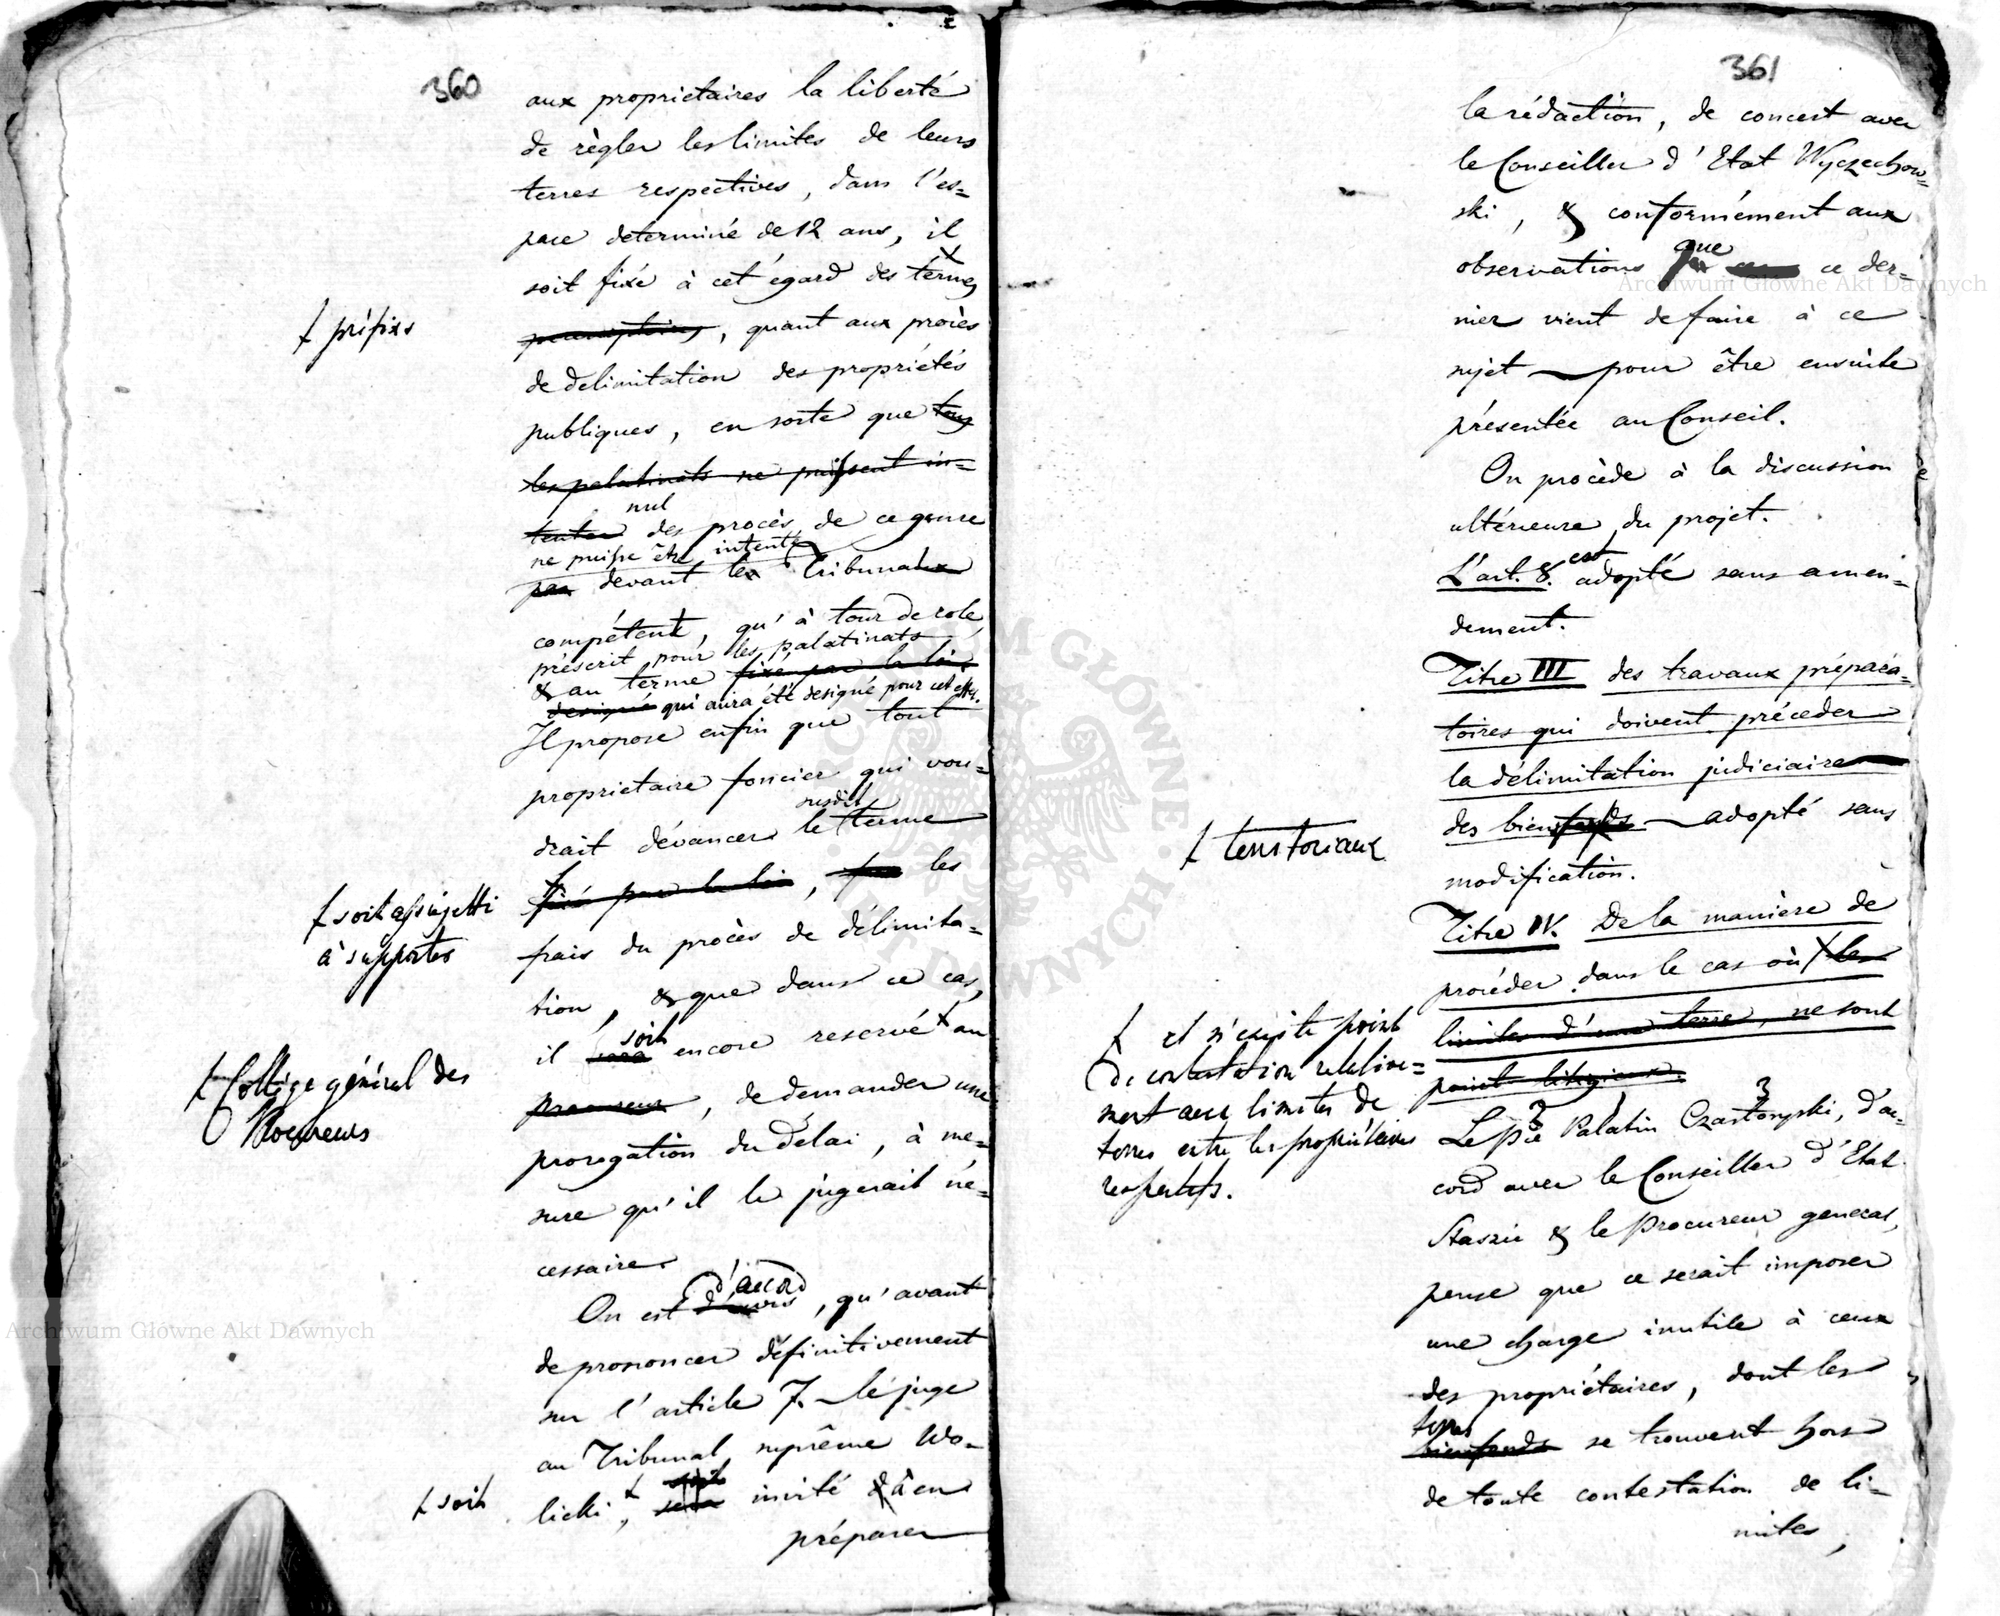 360
aux proprietaires la liberté
de règler les limites de leurs
terres respectives, dans l'es=
pace determiné de 12 ans, il
soit fixé à cet égard des termes
ƚ préfixs
, quant aux procès
de delimitation des propriétés
publiques, en sorte que tous
les palatinats ne puissent in=
nul
tenter des procès de ce genre
ne puisse être intenté
pas devant les Tribunaux
compétent, qu'à tour de role
préscrit pour les palatinats
& au terme fixé par la loi
designé qui aura été designé pour cet effet.
Il propose enfin que tout
proprietaire foncier qui vou=
susdit
drait dévancer le terme
fixé par la loi, les
ƚ soit assujetti
à supporter
frais du procès de délimita=
tion, & que dans ce cas,
soit
il sera encore reservé au
ƚ Collége général des
Procureurs
procureur, de demander une
prorogation du délai, à me=
sure qu'il le jugerait né=
cessaire.
d'accord
On est d'avis, qu'avant
de prononcer définitivement
sur l'article 7. le juge
au Tribunal suprême Wo=
soit
licki, sera invité à en
ƚ soit
préparer
361
la rédaction, de concert avec
le Conseiller d'Etat Wyczechow=
ski, & conformément aux
que
observations ce der=
nier vient de faire à ce
sujet pour être ensuite
présentée au Conseil.
On procède à la discussion
ultérieure du projet.
est
L'art. 8. adopté sans amen=
dement.
Titre III des travaux prépara=
toires qui doivent préceder
la délimitation judiciaire
des biens fonds adopté sans
ƚ territoriaux
modification.
Titre IV. De la manière de
procéder dans le cas où les
limites d'une terre, ne sont
point litigieux.
ƚ il n'existe point
de contestation relative=
ment aux limites de
terres entre les propriétaires
respectifs.
Le Pce Palatin Czartoryski, d'ac=
cord avec le Conseiller d'Etat
Staszic & le Procureur general,
pense que ce serait imposer
une charge inutile à ceux
des propriétaires, dont les
terres
bienfonds se trouvent hors
de toute contestation de li=
mites,
Archiwum Główne Akt Dawnych
Archiwum Główne Akt Dawnych